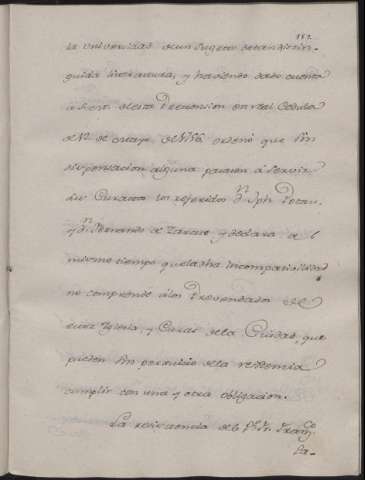 la Universidad de un Sugeto de tan distin-
guida literatura, y haviendo dado cuenta
a S. M. de esta Pretension en Real Cedula
de de Mayo de ordenó que sin
dispensacion alguna pasasen á servir
sus Curatos los referidos Dn. Jph.
y Dn. Fernando de y declara al
mismo tiempo que la dha Incompatibilidad
no comprende á los Prevendados de
esta Iglesia, y Curas de la Ciudad, que
pueden sin perjuicio de la residencia
cumplir con una y otra obligacion.
La residencia de Franco.